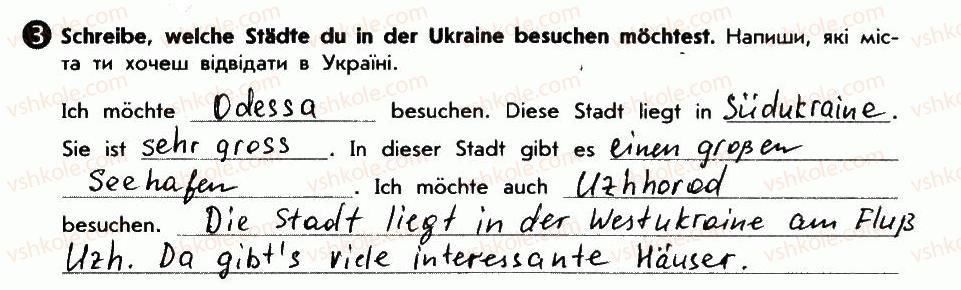 3 Schreibe, welche Städte du in der Ukraine besuchen möchtest. Напиши, які міс-
та ти хочеш відвідати в Україні.
Ich möchte Odessa besuchen. Diese Stadt liegt in Südukraine.
Sie ist sehr gross. In dieser Stadt gibt es einen großen
Seehafen. Ich möchte auch Uzhhorod
besuchen. Die Stadt liegt in der Westukraine am Fluß
Uzh. Da gibt's viele interessante Häuser.